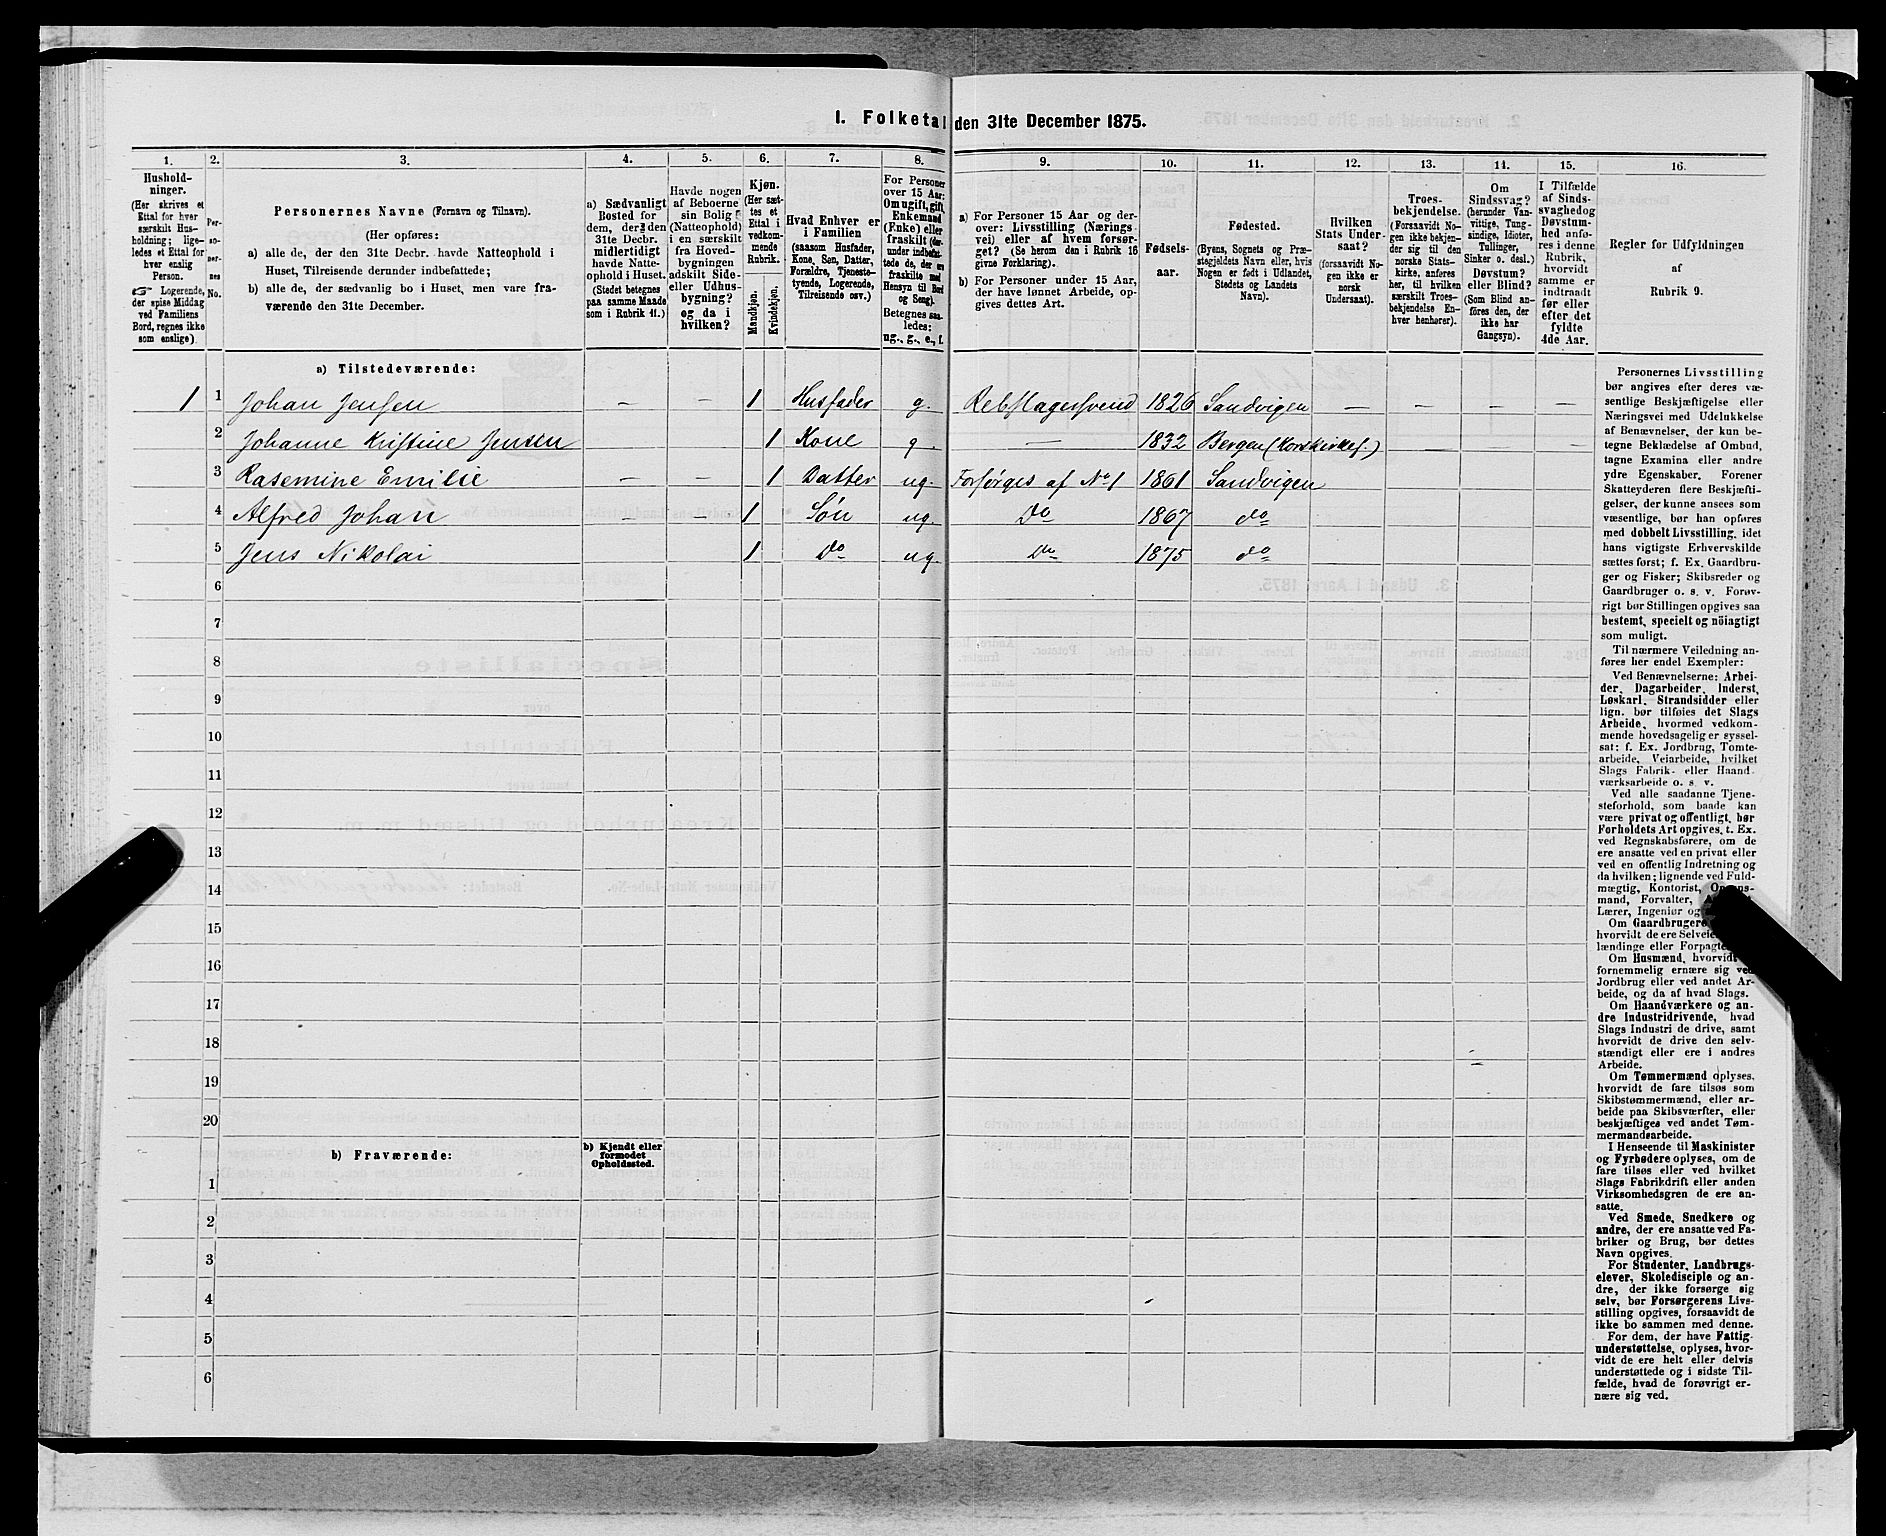 1. Folketal den 31te December 1875.
1. 2. 3. 4. 5. 6. 7. 8. 9. 10. 11. 12. 13. 14. 15. 16.
Hushold-
ninger.
(Her skrives et
Ettal for hver
særskilt Hus-
holdning; lige-
ledes et Ettal for
hver enslig
Person.
☞ Logerende,
der spise Middag
ved Familiens
Bord, regnes ikke
som enslige).
Per-
so-
ner-
nes
No.
Personernes Navne (Fornavn og Tilnavn).
(Her opføres:
a) alle de, der den 31te Decbr. havde Natteophold i
Huset, Tilreisende derunder indbefattede;
b) alle de, der sædvanlig bo i Huset, men vare fra-
værende den 31te December.
a) Sædvanligt
Bosted for
dem, der den
31te Decbr.
midlertidigt
havde Natte-
ophold i Huset.
(Stedet betegnes
paa samme Maade
som i Rubrik 11.)
Havde nogen
af Beboerne
sin Bolig
(Natteophold)
i en særskilt
fra Hoved-
bygningen
adskilt Side-
eller Udhus-
bygning?
og da i
hvilken?
Kjøn.
(Her sæt-
tes et
Ettal i
vedkom-
mende
Rubrik.
Mandkjøn.
Kvindekjøn.
Hvad Enhver er
i Familien
(saasom Husfader,
Kone, Søn, Datter,
Forældre, Tjeneste-
tyende, Logerende,
Tilreisende osv.)
For Personer
over 15 Aar:
Om ugift, gift,
Enkemand
(Enke) eller
fraskilt (der-
under indbefat-
tede de, der ere
fraskilte med
Hensyn til Bord
og Seng).
Betegnes saa-
ledes:
ug., g., e., f.
a) For Personer 15 Aar og der-
over: Livsstilling (Nærings-
vei) eller af hvem forsør-
get? (Se herom den i Rubrik 16
givne Forklaring).
b) For Personer under 15 Aar,
der have lønnet Arbeide, op-
gives dettes Art.
Fødsels-
aar.
Fødested.
(Byens, Sognets og Præ-
stegjeldets Navn eller, hvis
Nogen er født i Udlandet,
Stedets og Landets
Navn).
Hvilken
Stats Under-
saat?
(forsaavidt No-
gen ikke er
norsk
Undersaat).
Troes-
bekjendelse.
(Forsaavidt No-
gen ikke bekjen-
der sig til den
norske Stats-
kirke, anføres
her, til hvilken
særskilt Troes-
bekjendelse En-
hver henhører).
Om
Sindssvag?
(herunder Van-
vittige, Tung-
sindige, Idioter,
Tullinger,
Sinker o. desl.)
Døvstum?
eller Blind?
(Som Blind an-
føres den, der
ikke har
Gangsyn).
I Tilfælde
af Sinds-
svaghed og
Døvstum-
hed anfø-
res i denne
Rubrik,
hvorvidt
samme er
indtraadt
før eller
efter det
fyldte
4de Aar.
Regler for Udfyldningen
af
Rubrik 9.
a) Tilstedeværende:
1 1 Johan Jensen — — 1 Husfader g. Rebslagersvend 1826 Sandvigen — — — —
2 Johanne Kristine Jensen 1 Kone g. — 1832 Bergen (Korskirkes.)
3 Rasemine Emilie — — 1 Datter ug. Forsørges af No 1 1861 Sandvigen
4 Alfred Johan — — 1 Søn ug. Do 1867 do
5 Jens Nikolai 1 Do ug. Do 1875 do
6
7
8
9
10
11
12
13
14
15
16
17
18
19
20
b) Fraværende:
b) Kjendt eller
formodet
Opholdssted.
1
2
3
4
5
6
Personernes Livsstilling
bør angives efter deres væ-
sentlige Beskjæftigelse eller
Næringsvei med Udelukkelse
af Benævnelser, der kun be-
tegne Beklædelse af Ombud,
tagne Examina eller andre
ydre Egenskaber. Forener
Skatteyderen flere Beskjæfti-
gelser, der kunne ansees som
væsentlige, bør han opføres
med dobbelt Livsstilling, idet
hans vigtigste Erhvervskilde
sættes først; f. Ex. Gaardbru-
ger og Fisker; Skibsreder og
Gaardbruger o. s. v. Forøv-
rigt bør Stillingen opgives saa
bestemt, specielt og nöiagtigt
som muligt.
Til nærmere Veiledning an-
føres her endel Exempler:
Ved Benævnelserne: Arbei-
der, Dagarbeider, Inderst,
Løskarl, Strandsidder eller
lign. bør tilføies det Slags
Arbeide, hvormed vedkom-
mende hovedsagelig er syssel-
sat: f. Ex. Jordbrug, Tomte-
arbeide, Veiarbeide, hvilket
Slags Fabrik- eller Haand-
værksarbeide o. s. v.
Ved alle saadanne Tjene-
steforhold, som baade kan
være privat og offentligt, bør
Forholdets Art opgives, t. Ex.
ved Regnskabsførere, om de
ere ansatte ved en privat eller
ved en offentlig Indretning og
da hvilken; lignende ved Fuld-
mægtig, Kontorist,
mand, Forvalter,
Lærer, Ingeniør og
Om Gaardbrugere
hvorvidt de ere Selveie
lændinge eller Forpagte
Om Husmænd, hvorvidt
fornemmelig ernære sig ved
Jordbrug eller ved andet Ar-
beide, og da af hvad Slags.
Om Haandværkere og an-
dre Industridrivende, hvad
Slags Industri de drive, samt
hvorvidt de drive den selv-
stændigt eller ere i andres
Arbeide.
Om Tømmermænd oplyses,
hvorvidt de fare tilsøs som
Skibstømmermænd, eller ar-
beide paa Skibsværfter, eller
beskjæftiges ved andet Tøm-
mermandsarbeide.
I Henseende til Maskinister
og Fyrbødere oplyses, om de
fare tilsøs eller ved hvilket
Slags Fabrikdrift eller anden
Virksomhedsgren de ere an-
satte.
Ved Smede, Snedkere og
andre, der ere ansatte ved Fa-
briker og Brug, bør dettes
Navn opgives.
For Studenter, Landbrugs-
elever, Skoledisciple og an-
dre, der ikke forsørge sig
selv, bør Forsørgerens Livs-
stilling opgives, forsaavidt de
ikke bo sammen med denne.
For dem, der have Fattig-
understøttelse, oplyses, hvor-
vidt de ere helt eller delvis
understøttede og i sidste Til-
fælde, hvad de forøvrigt er-
nære sig ved.